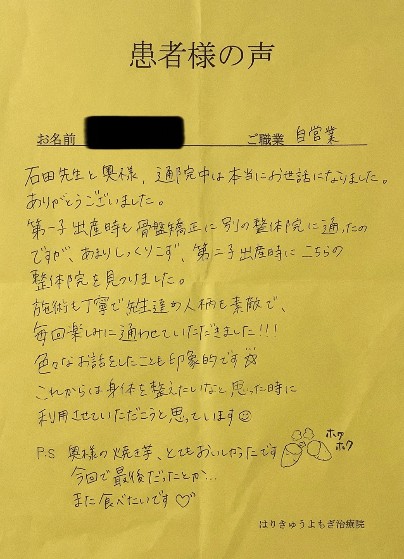 患者様の声
お名前
ご職業 自営業
石田先生と奥様、通院中は本当にお世話になりました。
ありがとうございました。
第一子出産時も骨盤矯正に別の整体院に通ったの
ですが、あまりしっくりこず、第二子出産時にこちらの
整体院を見つけました。
施術も丁寧で先生達の人柄も素敵で、
毎回楽しみに通わせていただきました!!!
色々なお話をしたことも印象的です☆
これからは身体を整えたいなと思った時に
利用させていただこうと思っています☺
P.S 奥様の焼き芋、とてもおいしかったです
ホクホク
今回で最後だったとか…
また食べたいです♡
はりきゅうよもぎ治療院